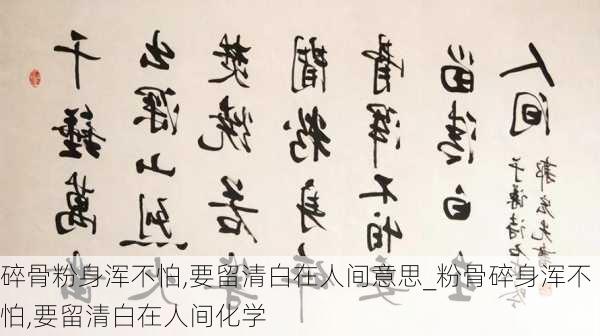 千錘萬
出深山烈火
焚烧若等
閒粉身碎
骨浑不怕要
留清白在
人间
于谦诗石灰吟
碎骨粉身浑不怕,要留清白在人间意思_粉骨碎身浑不
怕,要留清白在人间化学